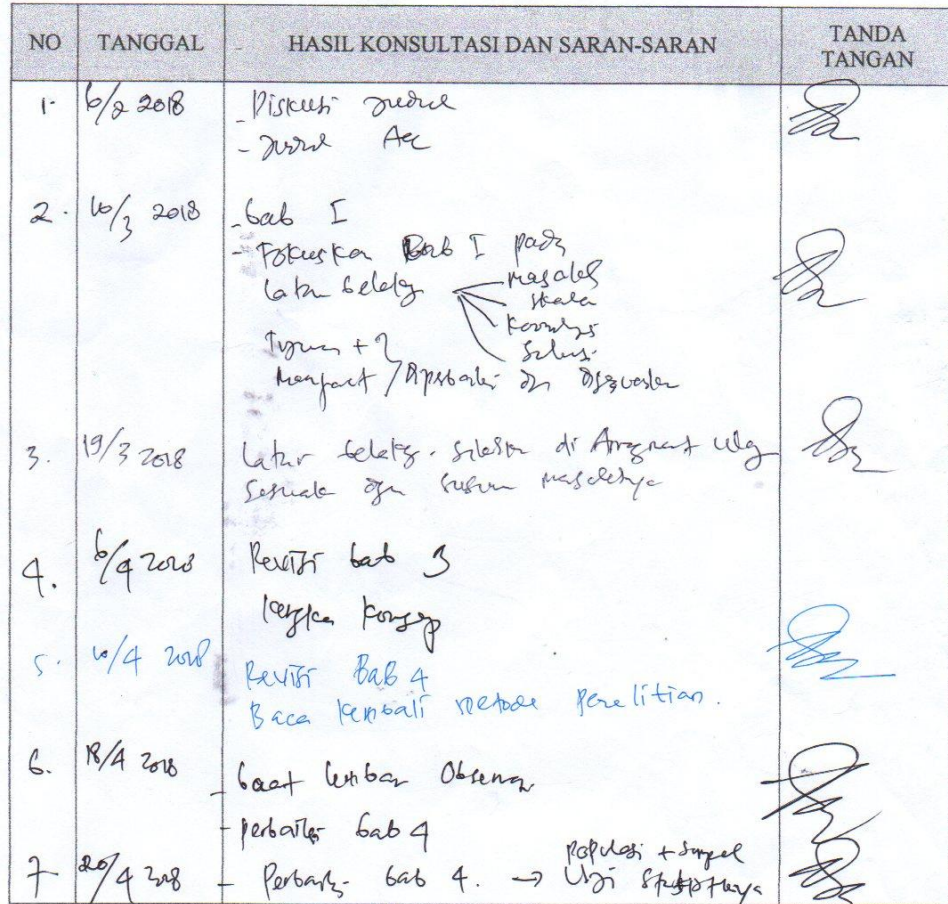 NO TANGGAL HASIL KONSULTASI DAN SARAN-SARAN TANDA TANGAN
1. 6/2 2018 - Diskusi judul
- Judul Acc
2. 10/3 2018 - bab I
- Fokuskan Bab I pada
latar belakg masalah
skala
kronologi
solusi
Tujuan +
Manfaat / diperbaiki
3. 19/3 2018 latar belakg.
masalahnya
4. 6/4 2018 Revisi bab 3
kerangka konsep
5. 10/4 2018 Revisi Bab 4
Baca kembali metode penelitian.
6. 18/4 2018 - buat lembar Observasi
- perbaiki bab 4
7 20/4 2018 - Perbaiki bab 4. → populasi + sampel
Uji